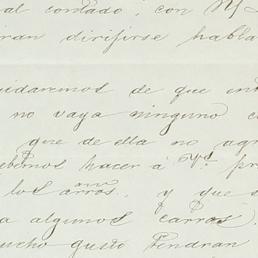 al contado, con
ran dirifirse habla
uidaremos de que
no vaya ninguno c
que de ella no ag
ebemos hacer á Vd. pr
los arros.. y que
a algunos carros).
ucho gusto tendran